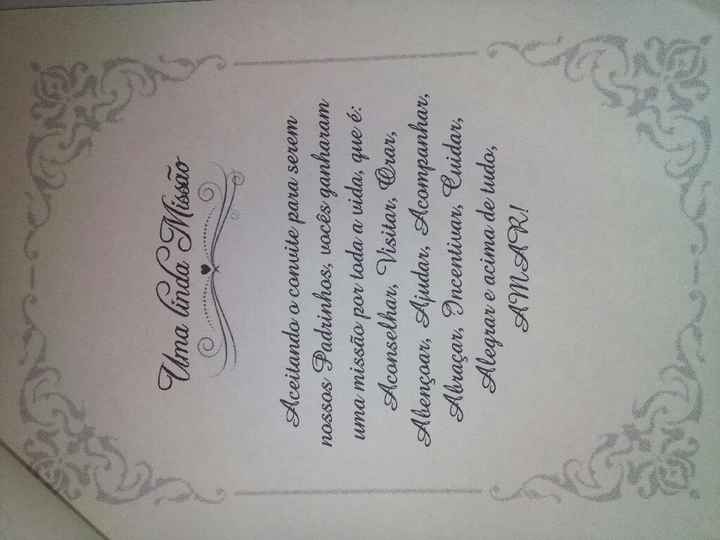 Uma linda Missão
Aceitando o convite para serem
nossos Padrinhos, vocês ganharam
uma missão por toda a vida, que é:
Aconselhar, Visitar, Orar,
Abençoar, Ajudar, Acompanhar,
Abraçar, Incentivar, Cuidar,
Alegrar e acima de tudo,
AMAR!